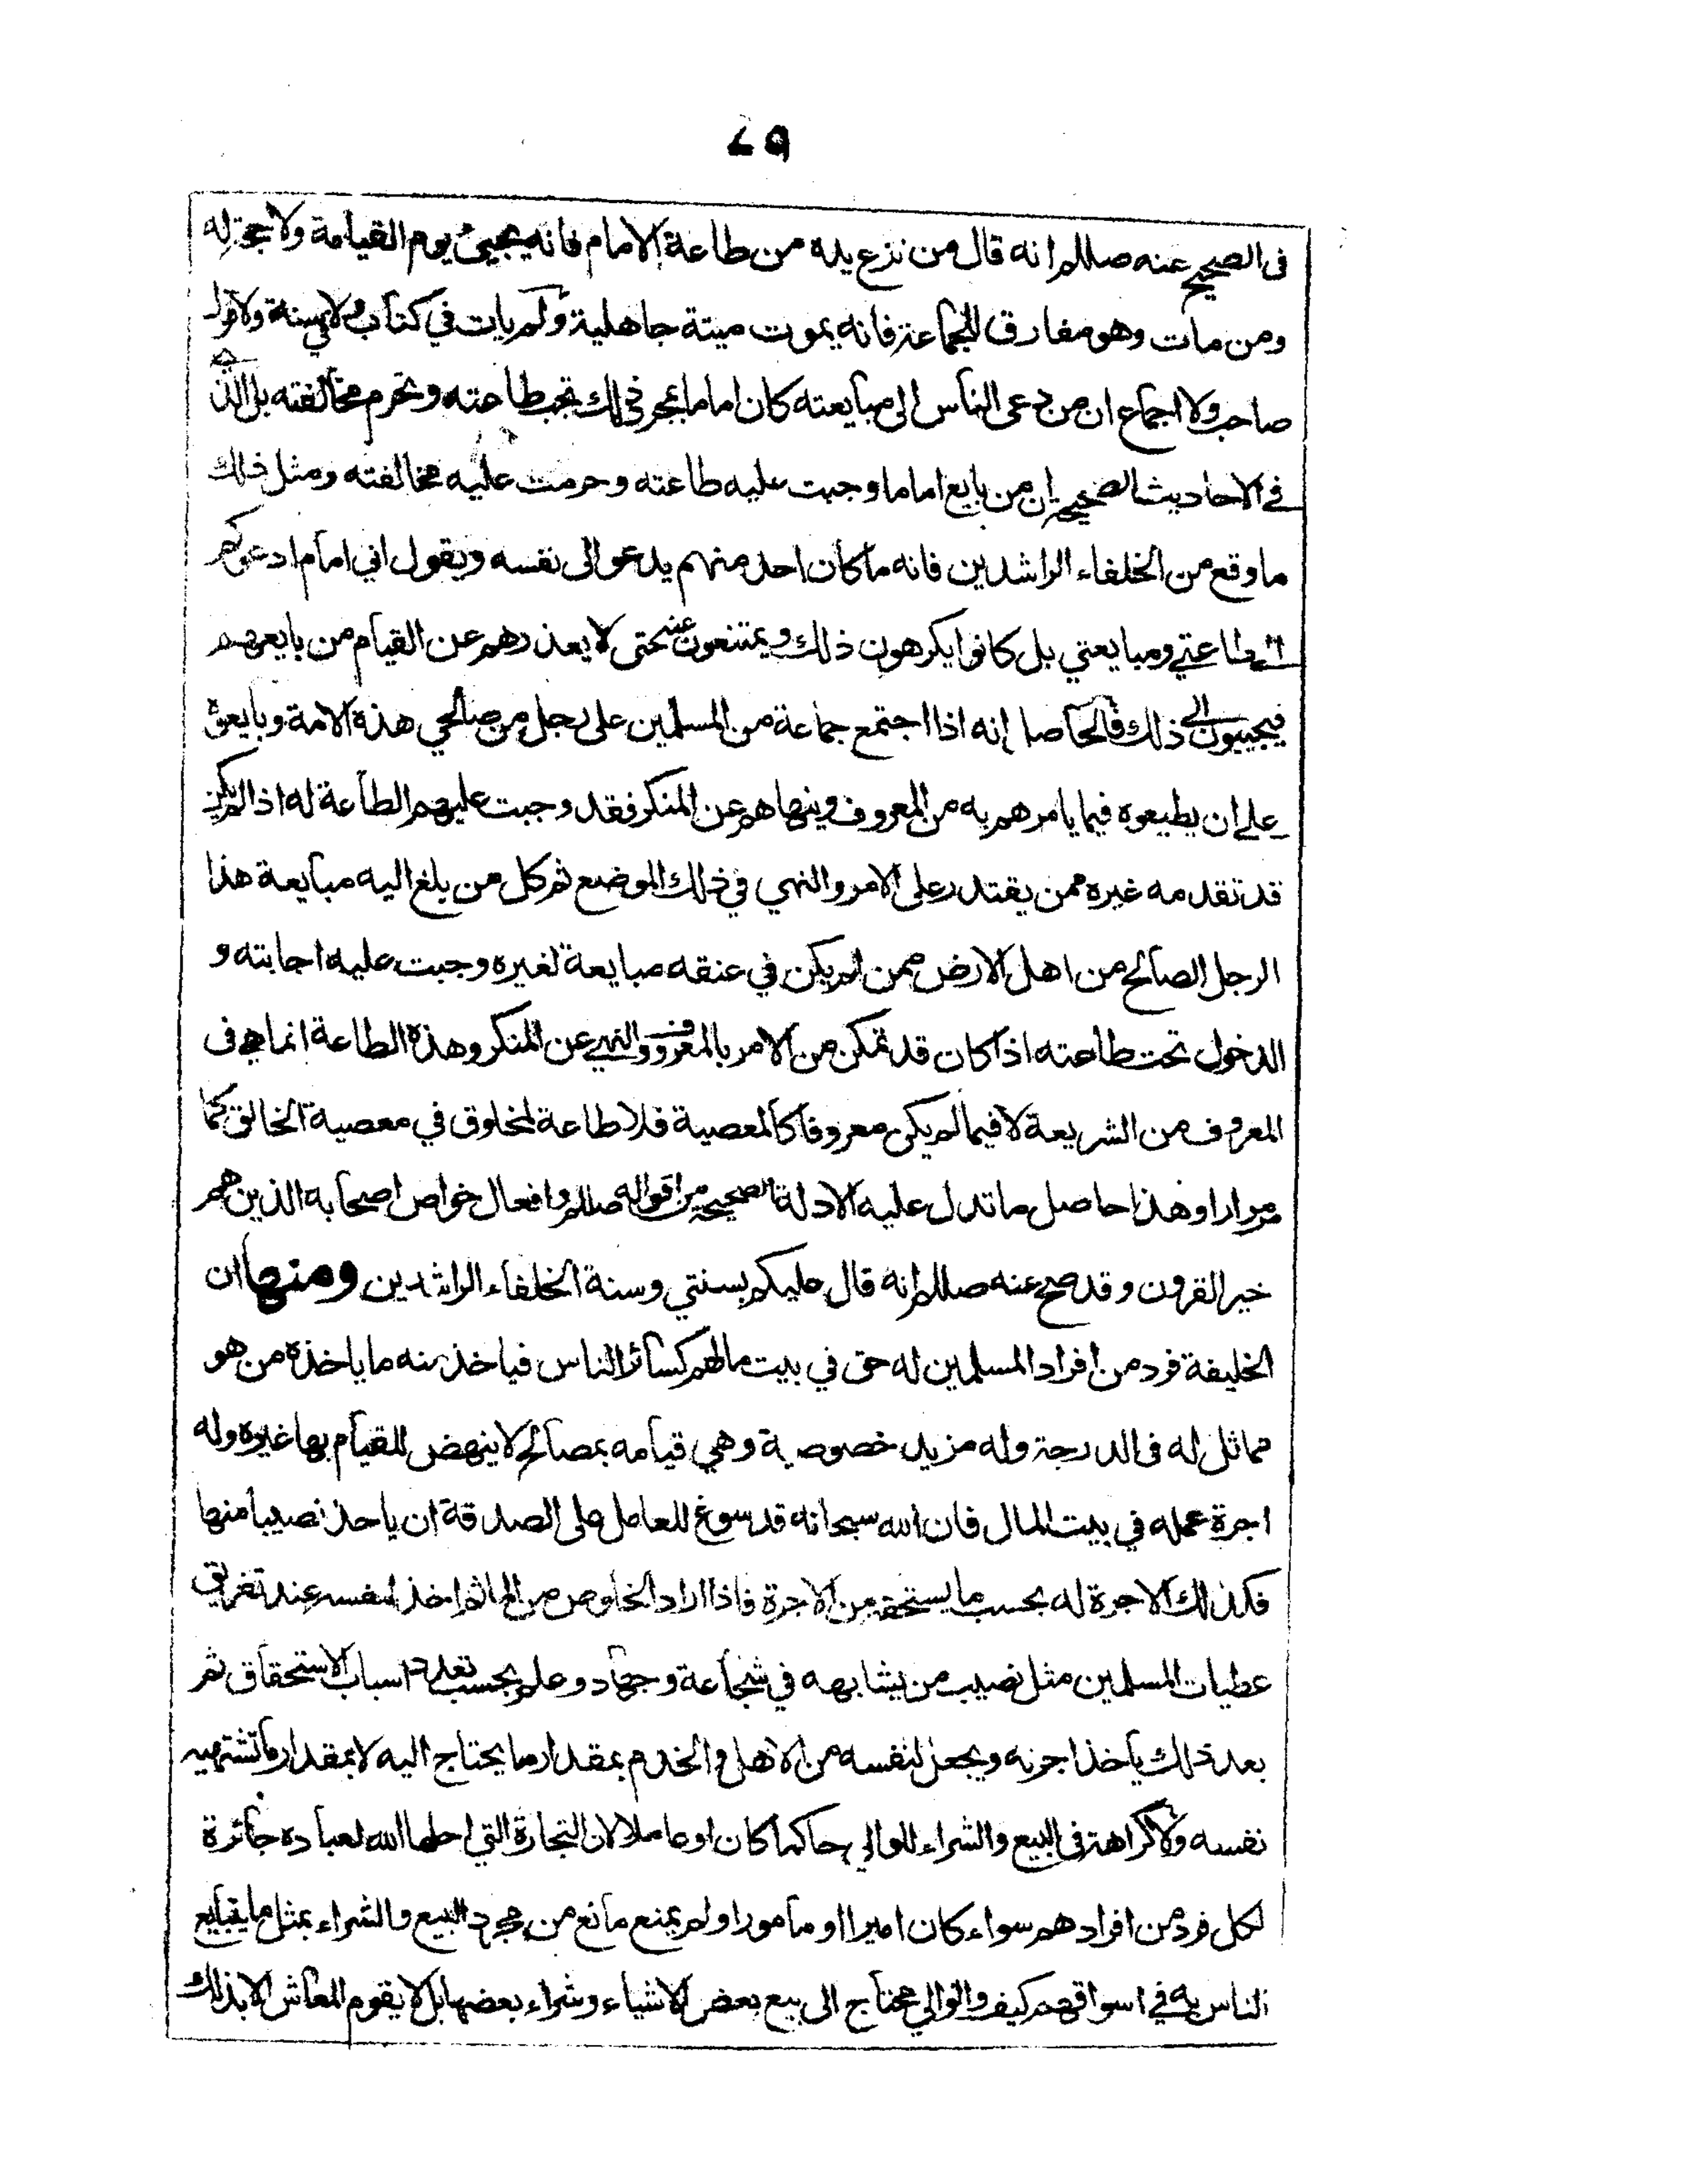 ٧٩
فى الصحيح عنه صللم انه قال من نزع يده من طاعة الامام فانه يجيئ يوم القيامة ولا حجة له
ومن مات وهو مفارق للجماعة فانه يموت ميتة جاهلية ولم يات في كتاب ولا سنة ولا قول
صاحب ولا اجماع ان من دعى الناس الى مبايعته كان اماما بمجرد ذلك تجب طاعته وتحرم مخالفته بل الذي
في الاحاديث الصحيحة ان من بايع اماما وجبت عليه طاعته وحرمت عليه مخالفته ومثل ذلك
ما وقع من الخلفاء الراشدين فانه ما كان احد منهم يدعو الى نفسه ويقول اني امام ادعوكم
الى طاعتي ومبايعتي بل كانوا يكرهون ذلك ويمتنعون عنه حتى لا يعذرهم عن القيام من بايعهم
فيجيبون الى ذلك فالحاصل انه اذا اجتمع جماعة من المسلمين على رجل من صالحي هذه الامة وبايعوه
على ان يطيعوه فيما يامرهم به من المعروف وينهاهم عن المنكر فقد وجبت عليهم الطاعة له اذا لم يكن
قد تقدمه غيره ممن يقتدر على الامر والنهي في ذلك الموضع ثم كل من بلغ اليه مبايعة هذا
الرجل الصالح من اهل الارض ممن لم يكن في عنقه مبايعة لغيره وجبت عليه اجابته و
الدخول تحت طاعته اذا كان قد تمكن من الامر بالمعروف والنهي عن المنكر وهذه الطاعة انما هي فى
المعروف من الشريعة لا فيما لم يكن معروفا كالمعصية فلا طاعة لمخلوق في معصية الخالق كما
مر مرارا وهذا حاصل ما تدل عليه الادلة الصحيحة من اقواله صللم وافعال خواص اصحابه الذين هم
خير القرون وقد صح عنه صللم انه قال عليكم بسنتي وسنة الخلفاء الراشدين ومنها ان
الخليفة فرد من افراد المسلمين له حق في بيت مالهم كسائر الناس فياخذ منه ما ياخذه من هو
مماثل له فى الدرجة وله مزيد خصوصية وهي قيامه بمصالح لا ينهض للقيام بها غيره وله
اجرة عمله في بيت المال فان الله سبحانه قد سوغ للعامل على الصدقة ان ياخذ نصيبا منها
فكذلك الاجرة له بحسب ما يستحقه من الاجرة فاذا اراد الخلوص من الماثم اخذ لنفسه عند تفريق
عطيات المسلمين مثل نصيب من يشابهه في شجاعة وجهاد وعلم بحسب تعدد اسباب الاستحقاق ثم
بعد ذلك يأخذ اجرته ويجعل لنفسه من الاهل والخدم بمقدار ما يحتاج اليه لا بمقدار ما تشتهيه
نفسه ولا كراهة فى البيع والشراء للوالي حاكما كان او عاملا لان التجارة التي احلها الله لعباده جائزة
لكل فرد من افرادهم سواء كان اميرا او مأمورا ولم يمنع مانع من مجرد البيع والشراء بمثل ما يتبايع
الناس به في اسواقهم كيف والوالي محتاج الى بيع بعض الاشياء وشراء بعضها بل لا يقوم المعاش الا بذلك